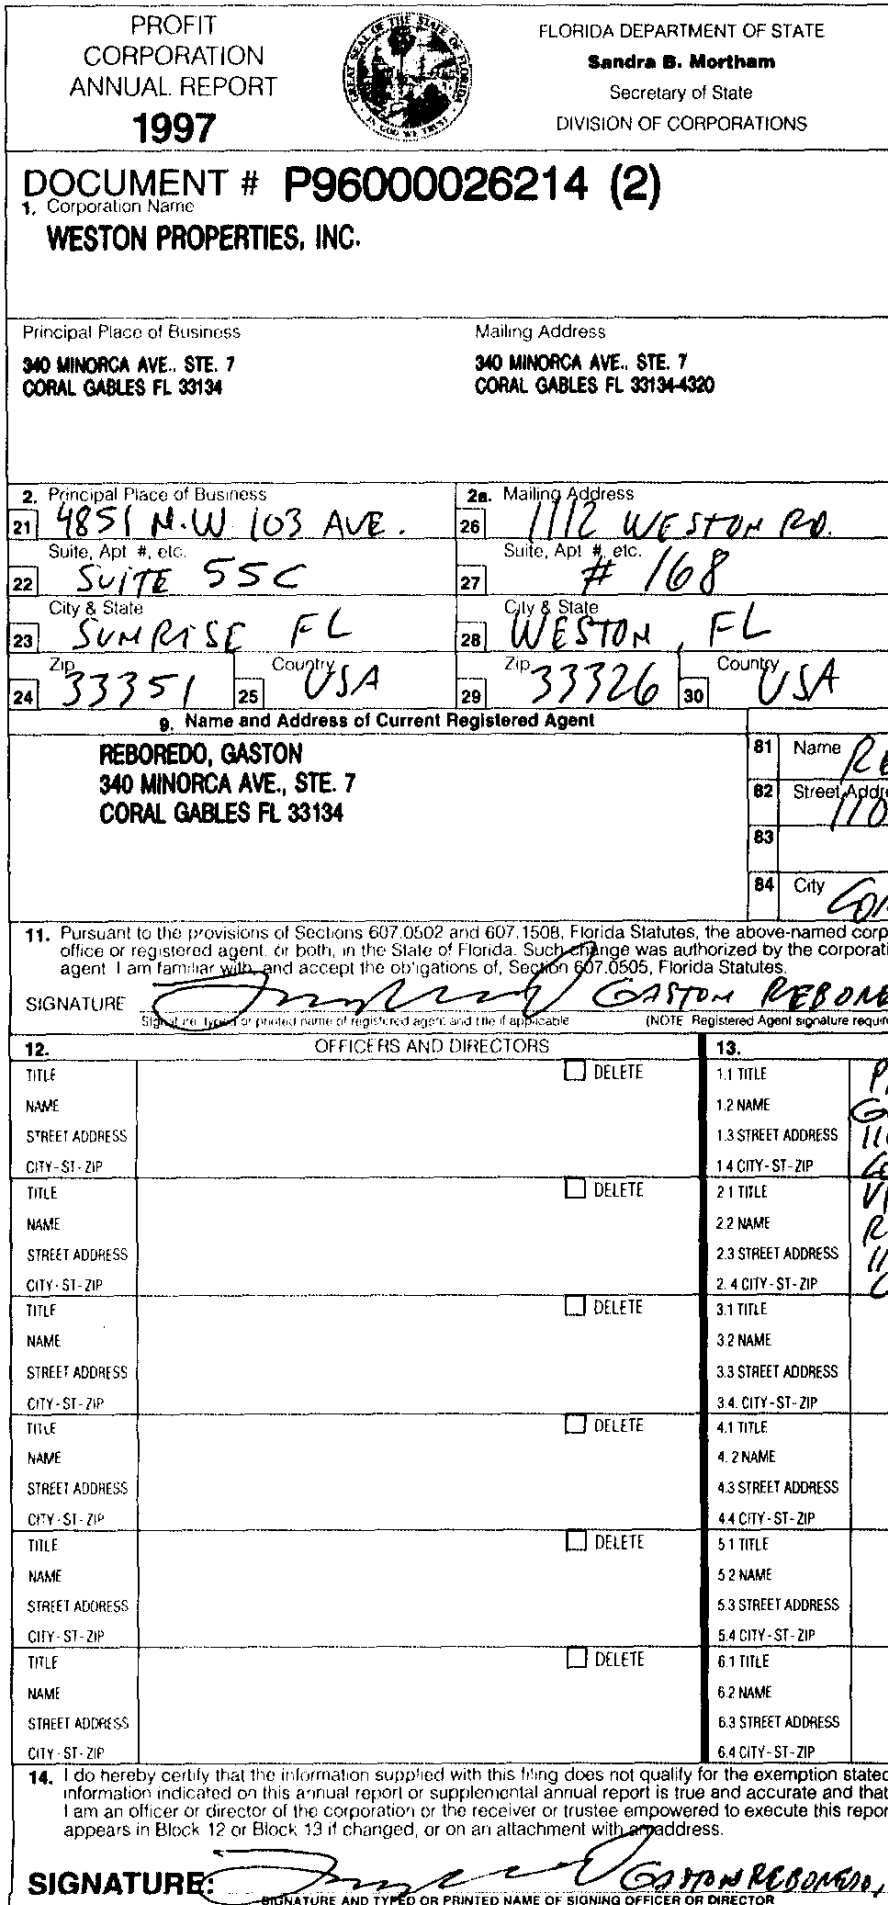 PROFIT
CORPORATION
ANNUAL REPORT
1997
GREAT SEAL OF THE STATE OF FLORIDA
IN GOD WE TRUST
FLORIDA DEPARTMENT OF STATE
Sandra B. Mortham
Secretary of State
DIVISION OF CORPORATIONS
DOCUMENT # P96000026214 (2)
1. Corporation Name
WESTON PROPERTIES, INC.
Principal Place of Business
340 MINORCA AVE., STE. 7
CORAL GABLES FL 33134
Mailing Address
340 MINORCA AVE., STE. 7
CORAL GABLES FL 33134-4320
2. Principal Place of Business
21 4851 N.W. 103 AVE.
Suite, Apt #, etc.
22 SUITE 55C
City & State
23 SUNRISE FL
Zip
24 33351
Country
25 USA
2a. Mailing Address
26 1112 WESTON RD.
Suite, Apt #, etc.
27 # 168
City & State
28 WESTON, FL
Zip
29 33326
Country
30 USA
9. Name and Address of Current Registered Agent
REBOREDO, GASTON
340 MINORCA AVE., STE. 7
CORAL GABLES FL 33134
81 Name
82 Street Addre
83
84 City
11. Pursuant to the provisions of Sections 607.0502 and 607.1508, Florida Statutes, the above-named corp
office or registered agent, or both, in the State of Florida. Such change was authorized by the corporati
agent. I am familiar with, and accept the obligations of, Section 607.0505, Florida Statutes.
SIGNATURE GASTON REBORE
Signature, typed or printed name of registered agent and title if applicable (NOTE Registered Agent signature require
12. OFFICERS AND DIRECTORS 13.
TITLE DELETE 1.1 TITLE
NAME 1.2 NAME
STREET ADDRESS 1.3 STREET ADDRESS
CITY-ST-ZIP 1.4 CITY-ST-ZIP
TITLE DELETE 2.1 TITLE
NAME 2.2 NAME
STREET ADDRESS 2.3 STREET ADDRESS
CITY-ST-ZIP 2.4 CITY-ST-ZIP
TITLE DELETE 3.1 TITLE
NAME 3.2 NAME
STREET ADDRESS 3.3 STREET ADDRESS
CITY-ST-ZIP 3.4. CITY-ST-ZIP
TITLE DELETE 4.1 TITLE
NAME 4.2 NAME
STREET ADDRESS 4.3 STREET ADDRESS
CITY-ST-ZIP 4.4 CITY-ST-ZIP
TITLE DELETE 5.1 TITLE
NAME 5.2 NAME
STREET ADDRESS 5.3 STREET ADDRESS
CITY-ST-ZIP 5.4 CITY-ST-ZIP
TITLE DELETE 6.1 TITLE
NAME 6.2 NAME
STREET ADDRESS 6.3 STREET ADDRESS
CITY-ST-ZIP 6.4 CITY-ST-ZIP
14. I do hereby certify that the information supplied with this filing does not qualify for the exemption stated
information indicated on this annual report or supplemental annual report is true and accurate and that
I am an officer or director of the corporation or the receiver or trustee empowered to execute this repor
appears in Block 12 or Block 13 if changed, or on an attachment with an address.
SIGNATURE: GASTON REBOREDO,
SIGNATURE AND TYPED OR PRINTED NAME OF SIGNING OFFICER OR DIRECTOR